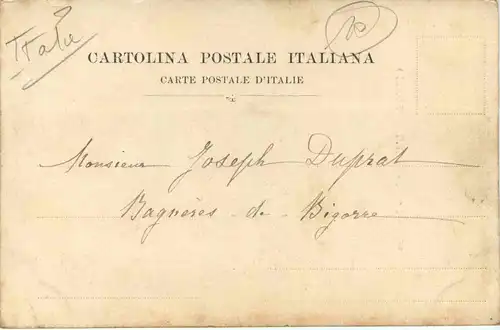 Italie
CARTOLINA POSTALE ITALIANA
CARTE POSTALE D'ITALIE
Monsieur Joseph Duprat
Bagnères-de-Bigorre